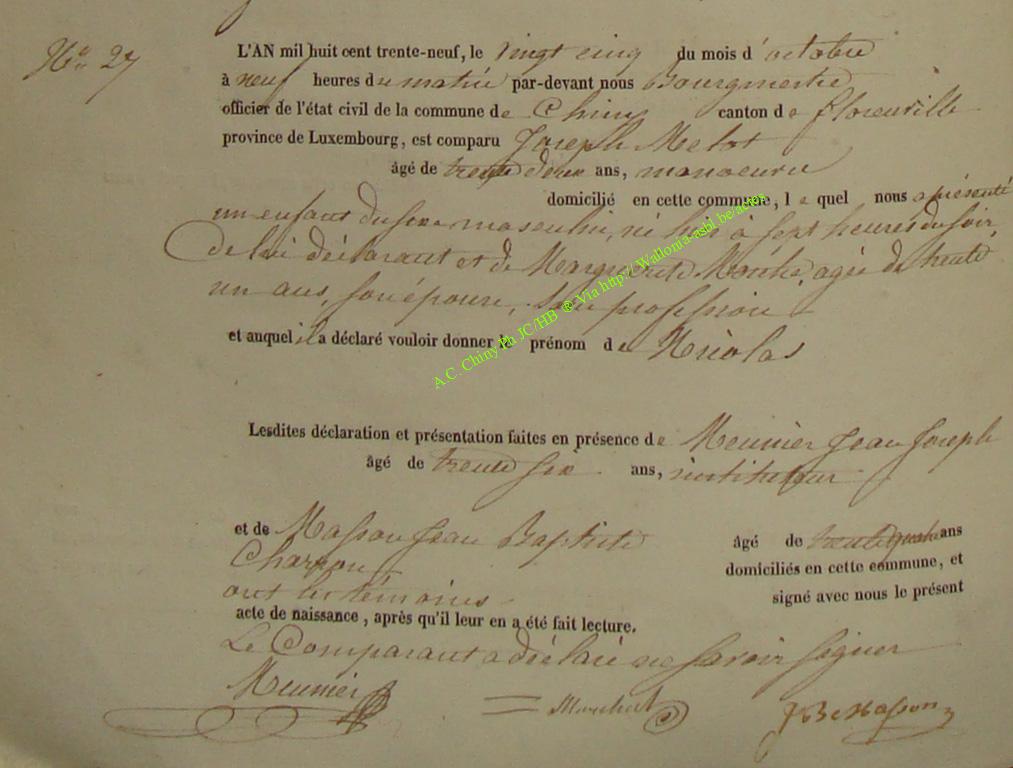 No 27
L'AN mil huit cent trente-neuf, le vingt cinq du mois d'octobre
à neuf heures du matin par-devant nous Bourgmestre
officier de l'état civil de la commune de Chiny canton de florenville
province de Luxembourg, est comparu Joseph Melot
âgé de trente deux ans, manoeuvre
domicilié en cette commune, le quel nous a présenté
un enfant du sexe masculin, né hier à sept heures du soir,
de lui déclarant et de Marguerite, agée de trente
un ans, son épouse, sans profession
et auquel il a déclaré vouloir donner le prénom de Nicolas
Lesdites déclaration et présentation faites en présence de Meunier Jean Joseph
âgé de trente six ans, instituteur
et de Masson Jean Baptiste âgé de trente quatre ans
Charron domiciliés en cette commune, et
ont les témoins signé avec nous le présent
acte de naissance, après qu'il leur en a été fait lecture.
Le Comparant a déclaré ne savoir signer
Meunier J B Masson
A.C. Chiny Ph JC/HB ® Via http://Wallonia-asbl.be/actes